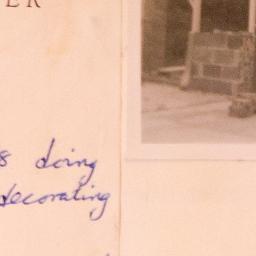 ER
doing
decorating